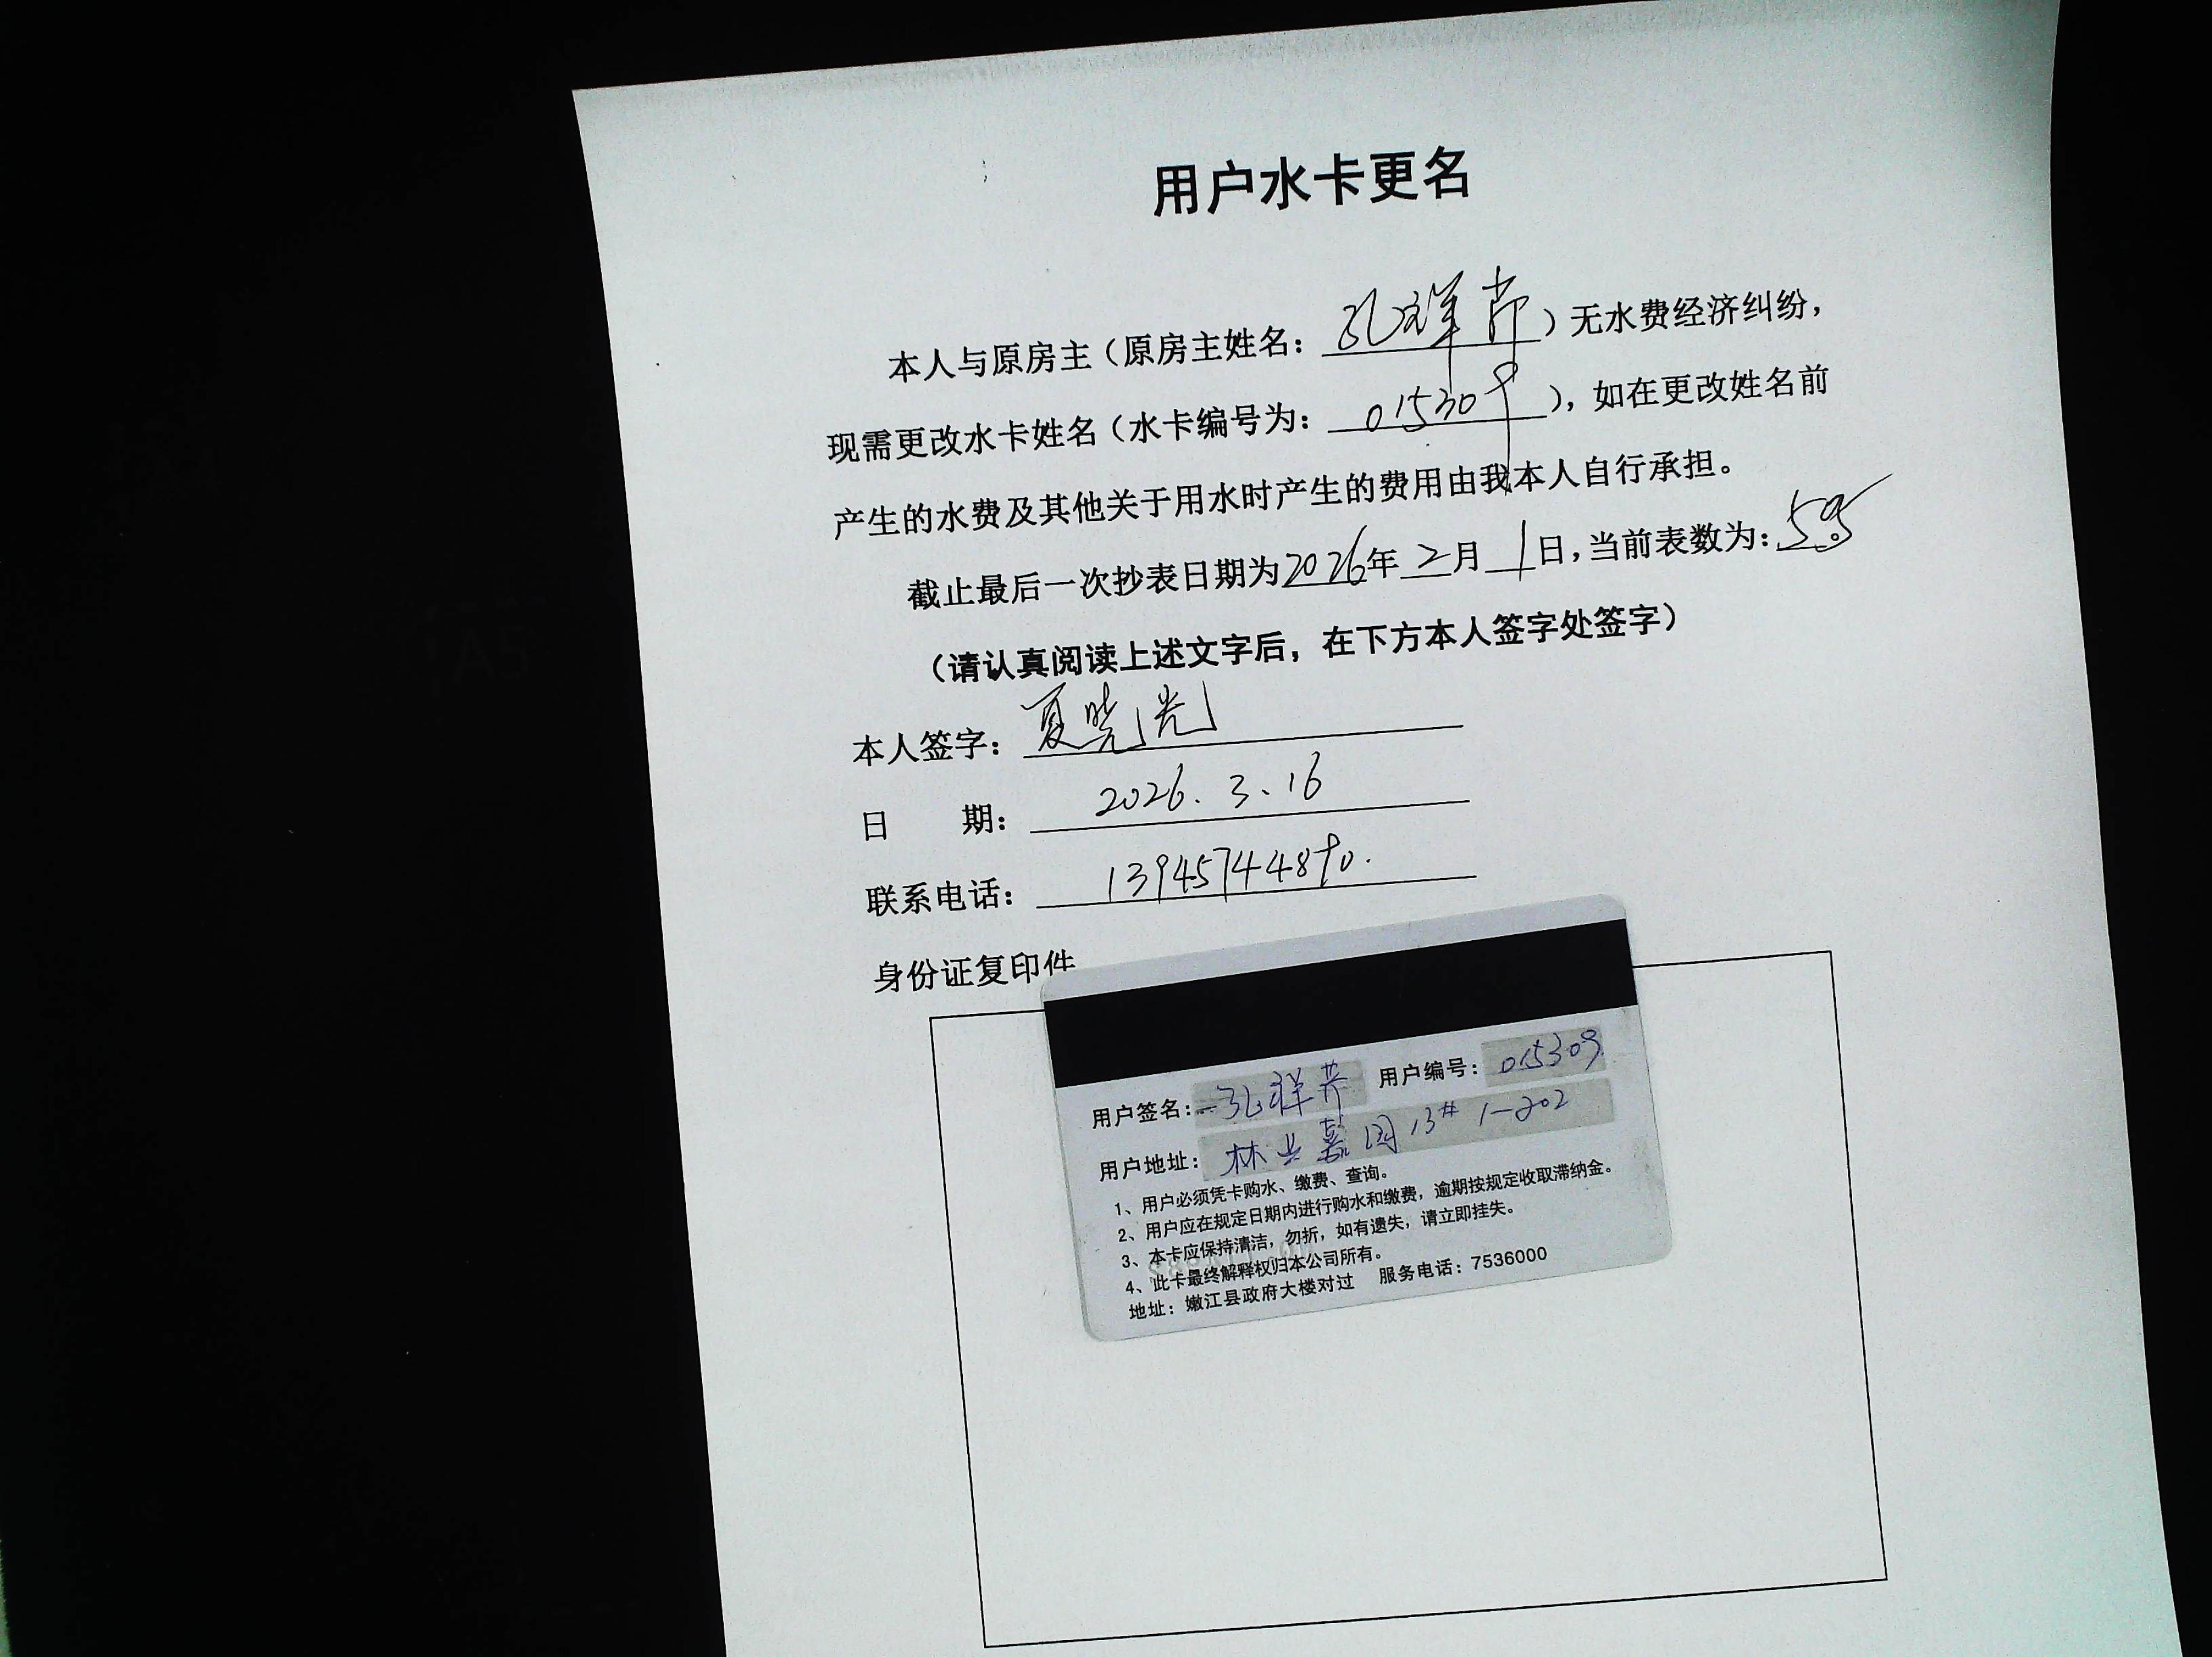 用户水卡更名
本人与原房主（原房主姓名：孔祥芹）无水费经济纠纷，
现需更改水卡姓名（水卡编号为：015309），如在更改姓名前
产生的水费及其他关于用水时产生的费用由我本人自行承担。
截止最后一次抄表日期为2026年2月1日，当前表数为：
（请认真阅读上述文字后，在下方本人签字处签字）
本人签字：夏晓光
日 期：2026.3.16
联系电话：13945744890.
身份证复印件
用户签名：孔祥芹 用户编号：015309
用户地址：林业嘉园13# 1-202
1、用户必须凭卡购水、缴费、查询。
2、用户应在规定日期内进行购水和缴费，逾期按规定收取滞纳金。
3、本卡应保持清洁，勿折，如有遗失，请立即挂失。
4、此卡最终解释权归本公司所有。
地址：嫩江县政府大楼对过 服务电话：7536000